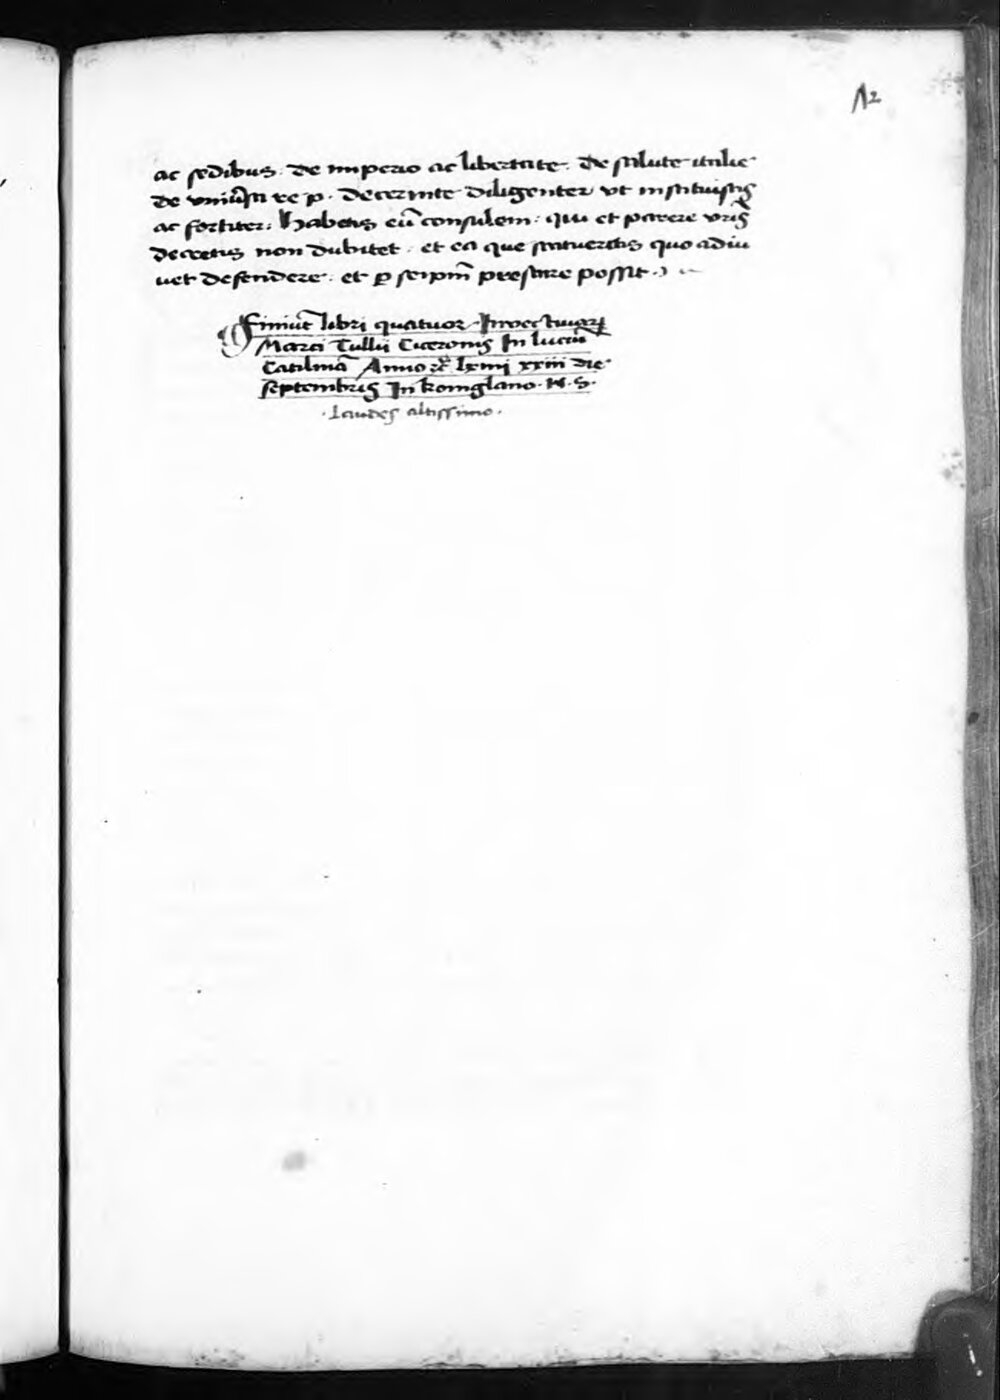 12
ac sedibus · de imperio ac libertate · de salute italie
de uniũsa re p · decernite diligenter ut instituistis
ac fortiter · Habetis eũ consulem · qui et parere vr̃is
decretis non dubitet · et ea que statueritis quo adiu
vet defendere · et ꝑ seipm̃ prestare possit ·
Finiũt libri quatuor Invectivaꝝ
Marci Tullii Ciceronis In luciũ
Catilinã Anno ⁊c̃ lxiiij xxiii die
septembris In · N · S ·
· Laudes altissimo ·